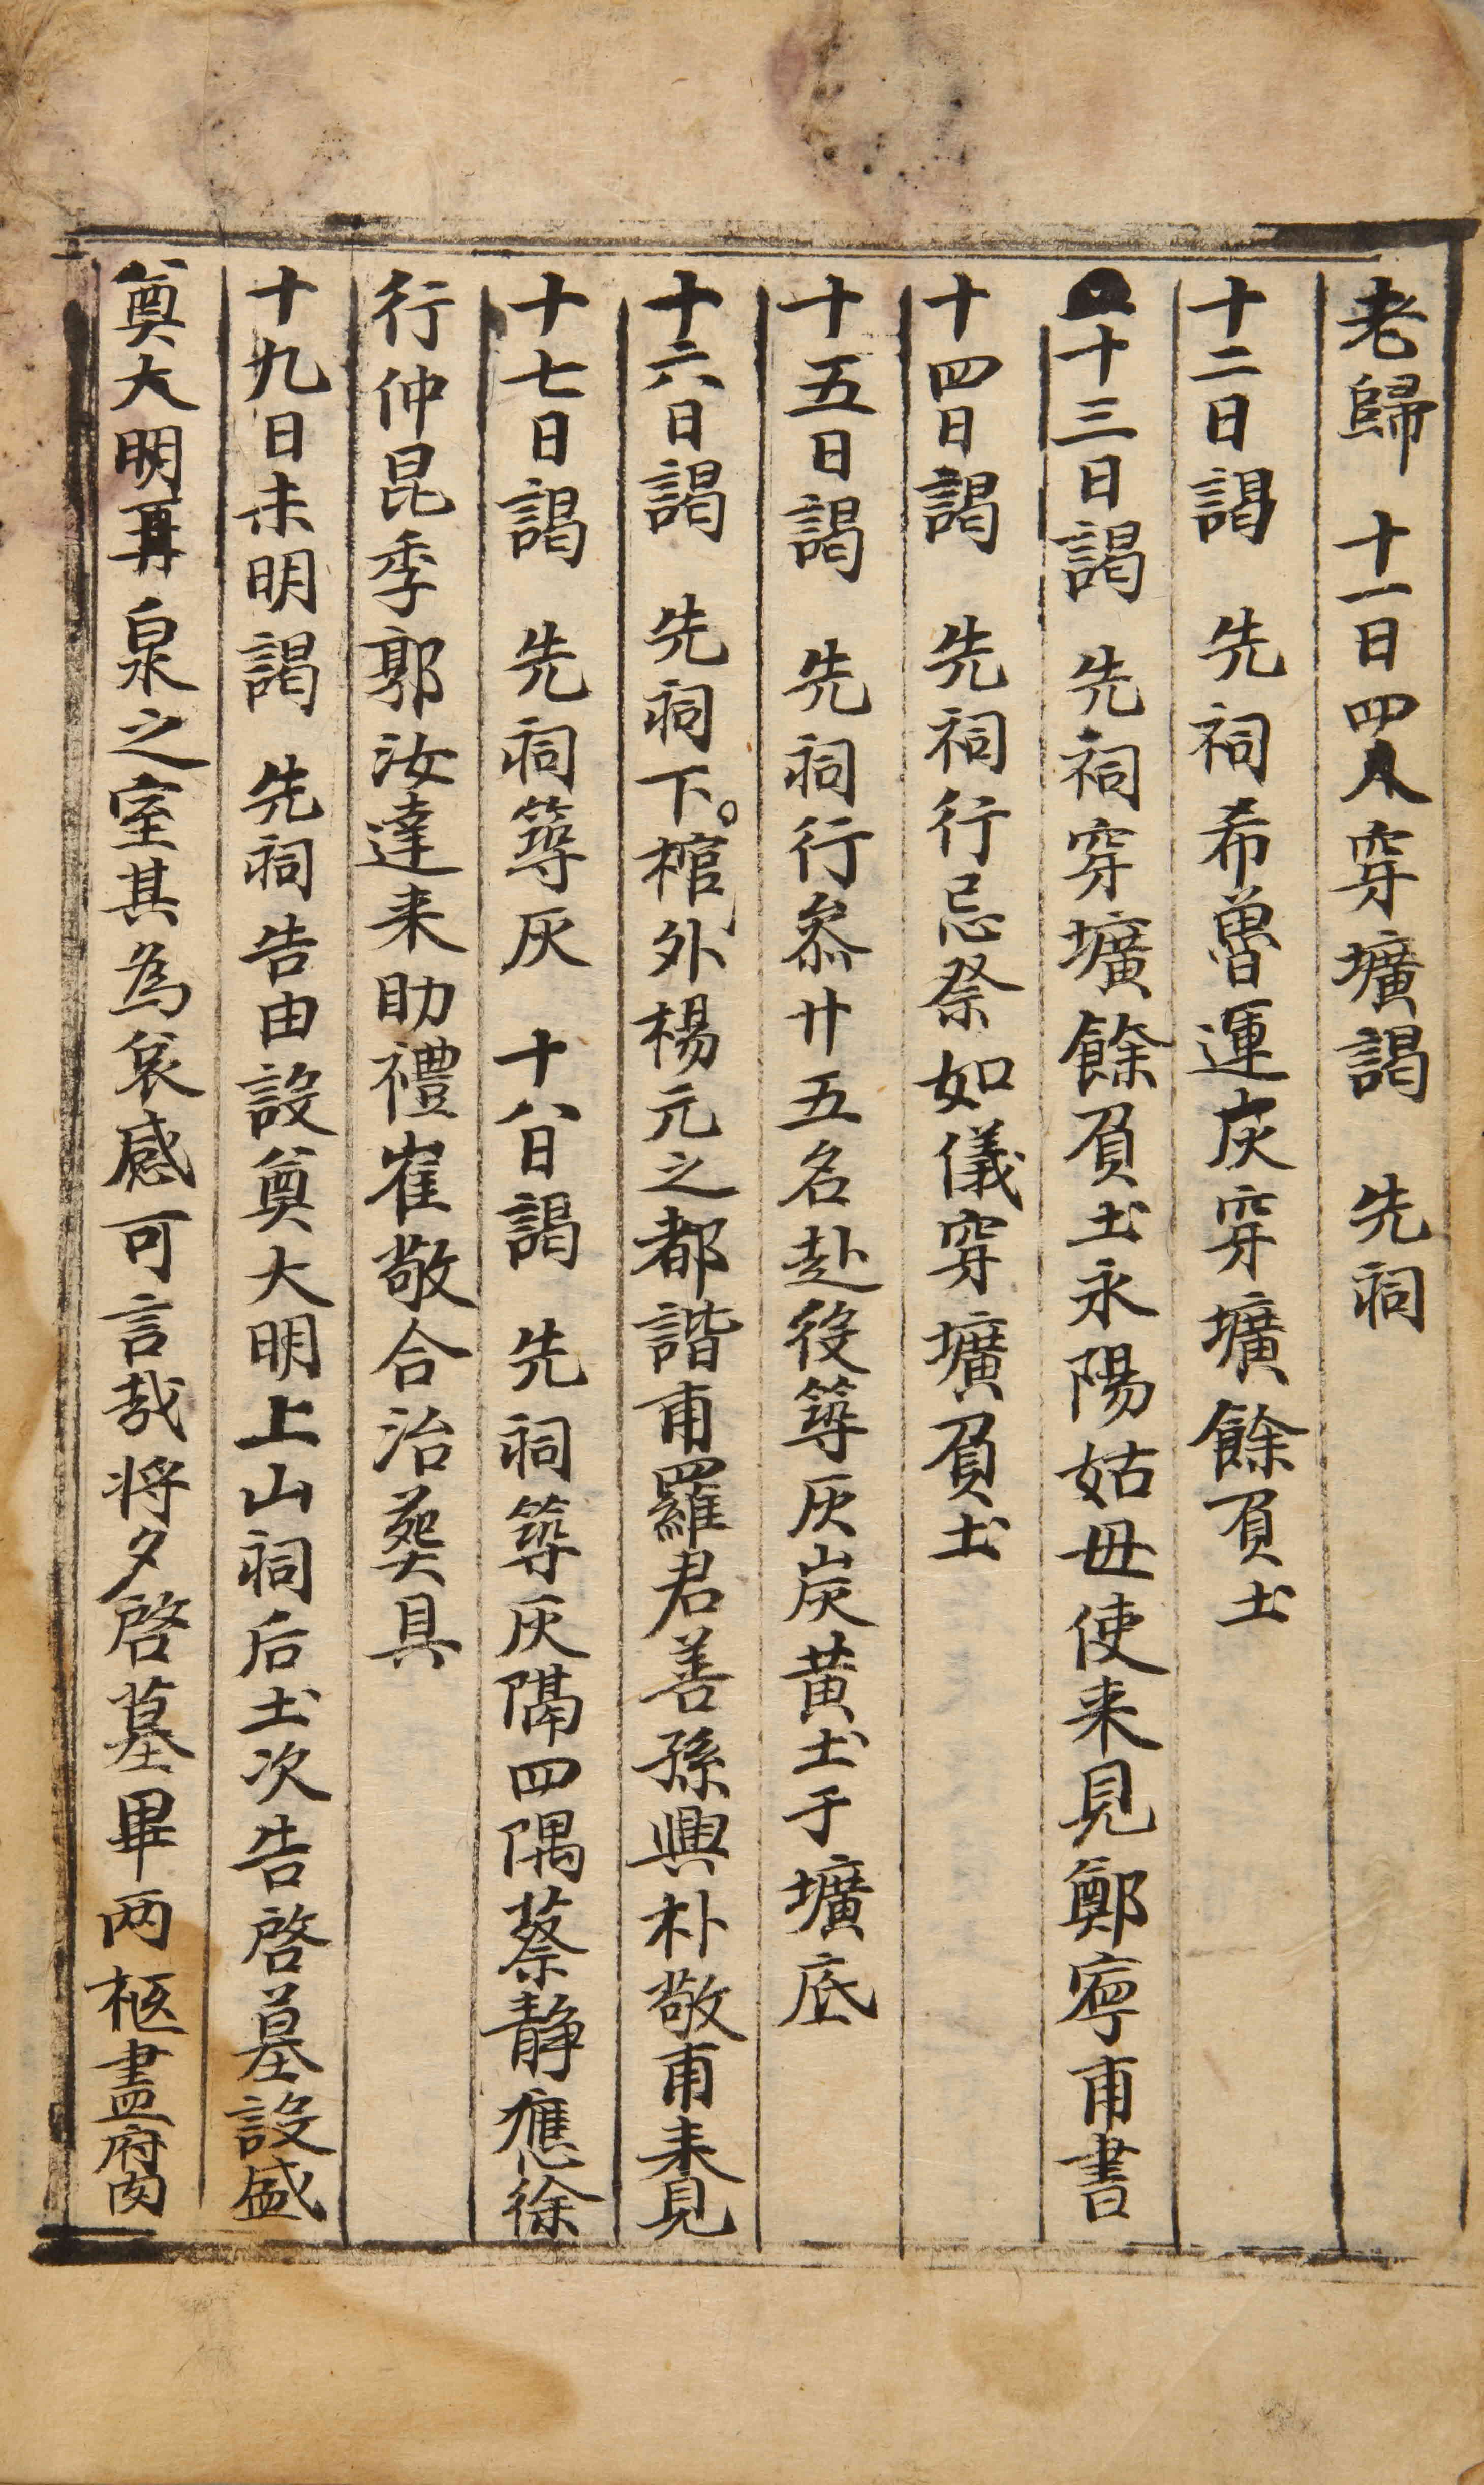 老歸　十一日四人穿壙謁　先祠
十二日謁　先祠希魯運灰穿壙餘負土
十三日謁　先祠穿壙餘負土永陽姑母使来見鄭寧甫書
十四日謁　先祠行忌祭如儀穿壙負土
十五日謁　先祠行叅廾五名赴役築灰炭黄土于壙底
十六日謁　先祠下棺外楊元之都諧甫羅君善孫興朴敬甫来見
十七日謁　先祠築灰　十八日謁　先祠築灰隔四隅蔡静應徐
行仲昆季郭汝達来助禮崔敬合治葬具
十九日未明謁　先祠告由設奠大明上山祠后土次告啓墓設盛
奠大明再泉之室其為哀感可言哉将夕啓墓畢两柩盡腐肉